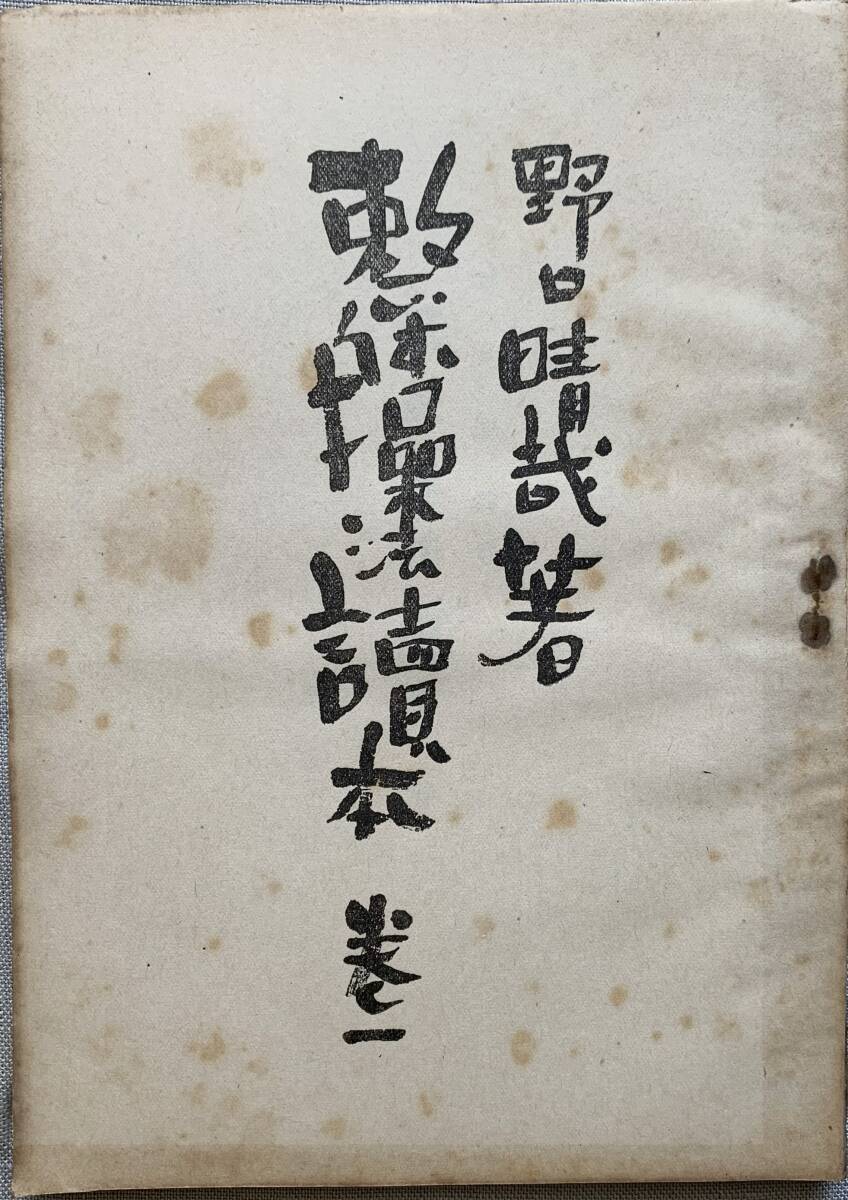 野口晴哉著
整体操法讀本 卷一